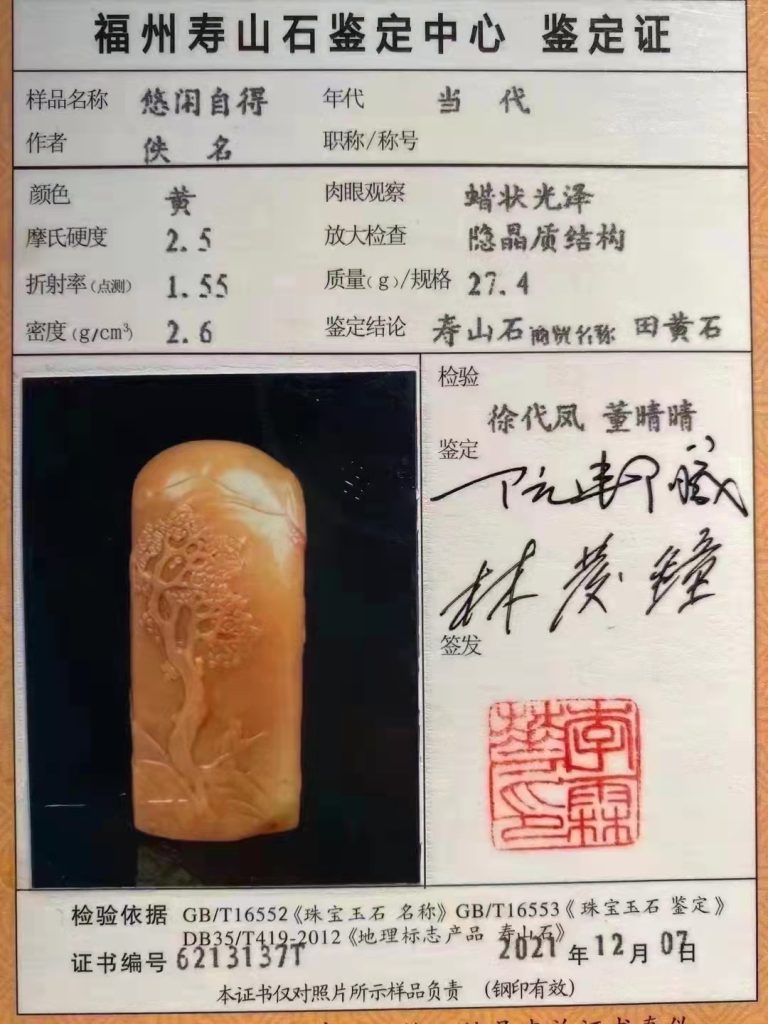 福州寿山石鉴定中心 鉴定证
样品名称 悠闲自得 年代 当 代
作者 佚 名 职称/称号
颜色 黄 肉眼观察 蜡状光泽
摩氏硬度 2.5 放大检查 隐晶质结构
折射率(点测) 1.55 质量(g)/规格 27.4
密度(g/cm³) 2.6 鉴定结论 寿山石 商贸名称 田黄石
检验
徐代凤 董晴晴
鉴定
林发钟
签发
检验依据 GB/T16552《珠宝玉石 名称》GB/T16553《珠宝玉石 鉴定》
DB35/T419-2012《地理标志产品 寿山石》
证书编号 6213137T 2021 年 12 月 07 日
本证书仅对照片所示样品负责 (钢印有效)